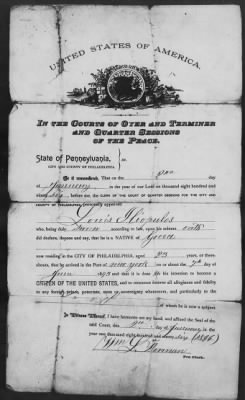 UNITED STATES OF AMERICA.
IN THE COURTS OF OYER AND TERMINER
AND QUARTER SESSIONS
OF THE PEACE.
State of Pennsylvania, ss.
CITY AND COUNTY OF PHILADELPHIA
Be it remembered, That on the
day of January in the year of our Lord one thousand eight hundred and
before the CLERK OF THE COURT OF QUARTER SESSIONS FOR THE CITY AND
COUNTY OF PHILADELPHIA, personally appeared
Louis
who being duly Sworn according to law, upon his solemn oath
did declare, depose and say, that he is a NATIVE of
now residing in the CITY OF PHILADELPHIA, aged 23 years, or there-
abouts, that he arrived in the Port of New York on or about the 7th day of
June and that it is his intention to become a
CITIZEN OF THE UNITED STATES, and to renounce forever all allegiance and fidelity
to any foreign prince, potentate, state or sovereignty whatsoever, and particularly to the
of of whom he is now a subject.
In Witness Whereof, I have hereunto set my hand, and affixed the Seal of the
said Court, this day of January, in the
year one thousand eight hundred and
Wm
Clerk.